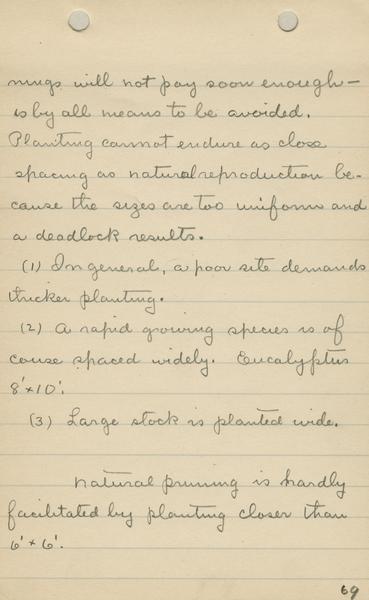 nings will not pay soon enough—
is by all means to be avoided.
Planting cannot endure as close
spacing as natural reproduction be-
cause the sizes are too uniform and
a deadlock results.
(1) In general, a poor site demands
thicker planting.
(2) A rapid growing species is of
couse spaced widely. Eucalyptus
8'×10'.
(3) Large stock is planted wide.
Natural pruning is hardly
facilitated by planting closer than
6'×6'.
69